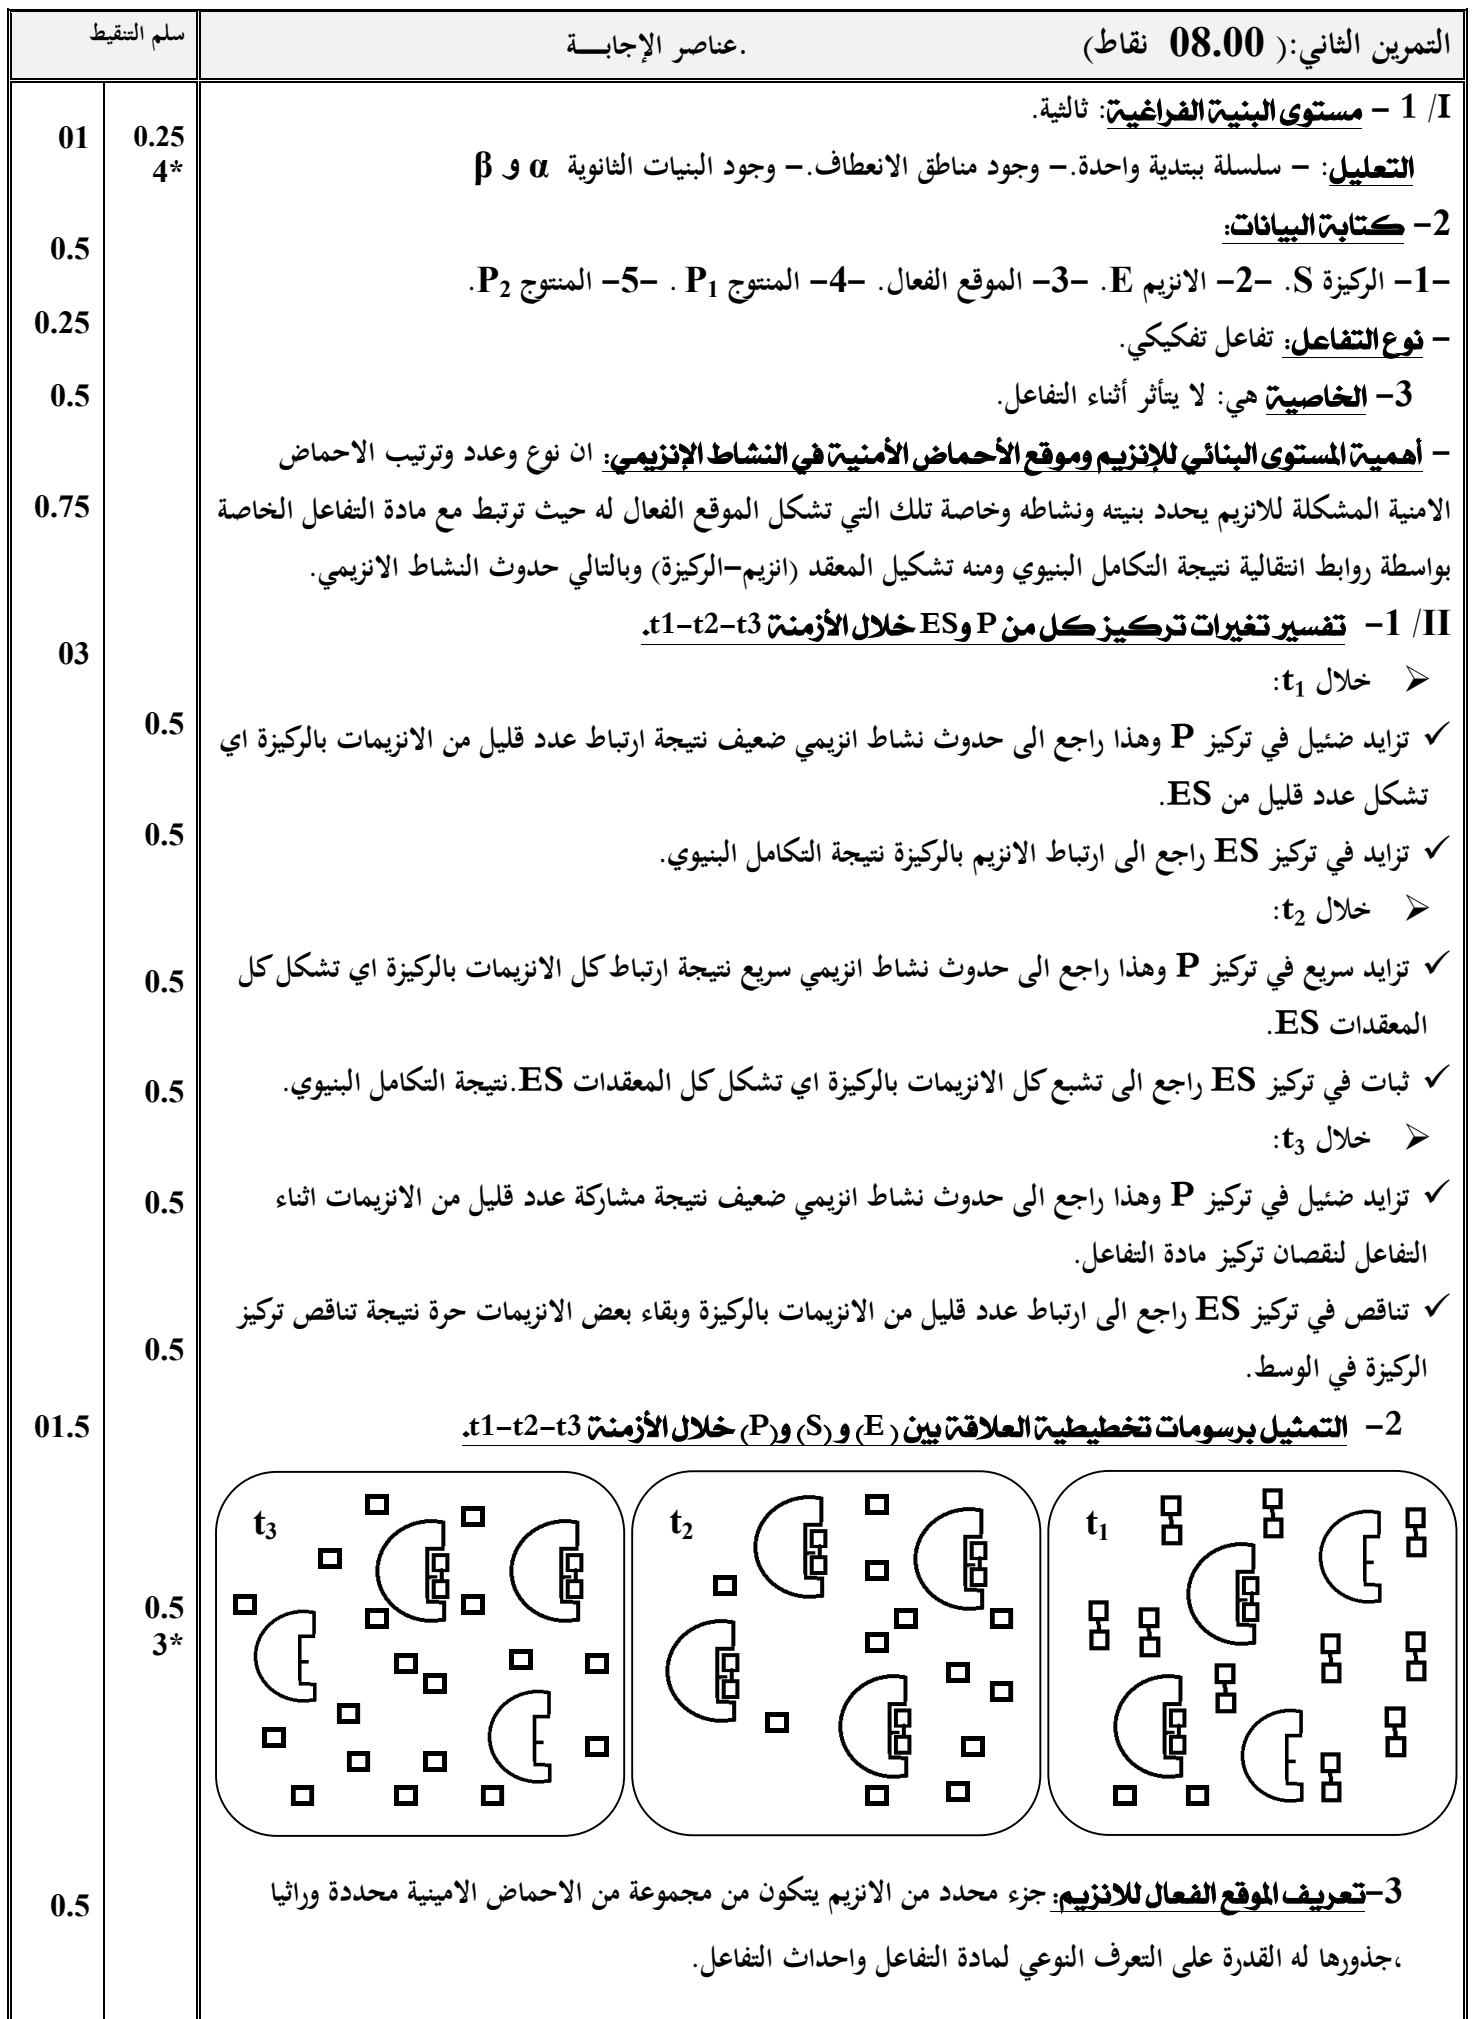 التمرين الثاني:( 08.00 نقاط) .عناصر الإجابــــة سلم التنقيط
I/ 1 – مستوى البنية الفراغية: ثالثية.
01 0.25
التعليل: – سلسلة ببتدية واحدة.– وجود مناطق الانعطاف.– وجود البنيات الثانوية α و β
4*
2– كتابة البيانات:
0.5
–1– الركيزة S. –2– الانزيم E. –3– الموقع الفعال. –4– المنتوج P1 . –5– المنتوج P2.
0.25
– نوع التفاعل: تفاعل تفكيكي.
3– الخاصية هي: لا يتأثر أثناء التفاعل.
0.5
– أهمية المستوى البنائي للإنزيم وموقع الأحماض الأمنية في النشاط الإنزيمي: ان نوع وعدد وترتيب الاحماض
الامنية المشكلة للانزيم يحدد بنيته ونشاطه وخاصة تلك التي تشكل الموقع الفعال له حيث ترتبط مع مادة التفاعل الخاصة
0.75
بواسطة روابط انتقالية نتيجة التكامل البنيوي ومنه تشكيل المعقد (انزيم–الركيزة) وبالتالي حدوث النشاط الانزيمي.
II/ 1– تفسير تغيرات تركيز كل من P وES خلال الأزمنة t1–t2–t3.
03
➢ خلال t1:
✓ تزايد ضئيل في تركيز P وهذا راجع الى حدوث نشاط انزيمي ضعيف نتيجة ارتباط عدد قليل من الانزيمات بالركيزة اي
0.5
تشكل عدد قليل من ES.
✓ تزايد في تركيز ES راجع الى ارتباط الانزيم بالركيزة نتيجة التكامل البنيوي.
0.5
➢ خلال t2:
✓ تزايد سريع في تركيز P وهذا راجع الى حدوث نشاط انزيمي سريع نتيجة ارتباط كل الانزيمات بالركيزة اي تشكل كل
0.5
المعقدات ES.
✓ ثبات في تركيز ES راجع الى تشبع كل الانزيمات بالركيزة اي تشكل كل المعقدات ES.نتيجة التكامل البنيوي.
0.5
➢ خلال t3:
✓ تزايد ضئيل في تركيز P وهذا راجع الى حدوث نشاط انزيمي ضعيف نتيجة مشاركة عدد قليل من الانزيمات اثناء
0.5
التفاعل لنقصان تركيز مادة التفاعل.
✓ تناقص في تركيز ES راجع الى ارتباط عدد قليل من الانزيمات بالركيزة وبقاء بعض الانزيمات حرة نتيجة تناقص تركيز
0.5
الركيزة في الوسط.
2– التمثيل برسومات تخطيطية العلاقة بين ( E) و (S) و(P) خلال الأزمنة t1–t2–t3.
01.5
t1 t2 t3
0.5
3*
3–تعريف الموقع الفعال للانزيم: جزء محدد من الانزيم يتكون من مجموعة من الاحماض الامينية محددة وراثيا
0.5
،جذورها له القدرة على التعرف النوعي لمادة التفاعل واحداث التفاعل.